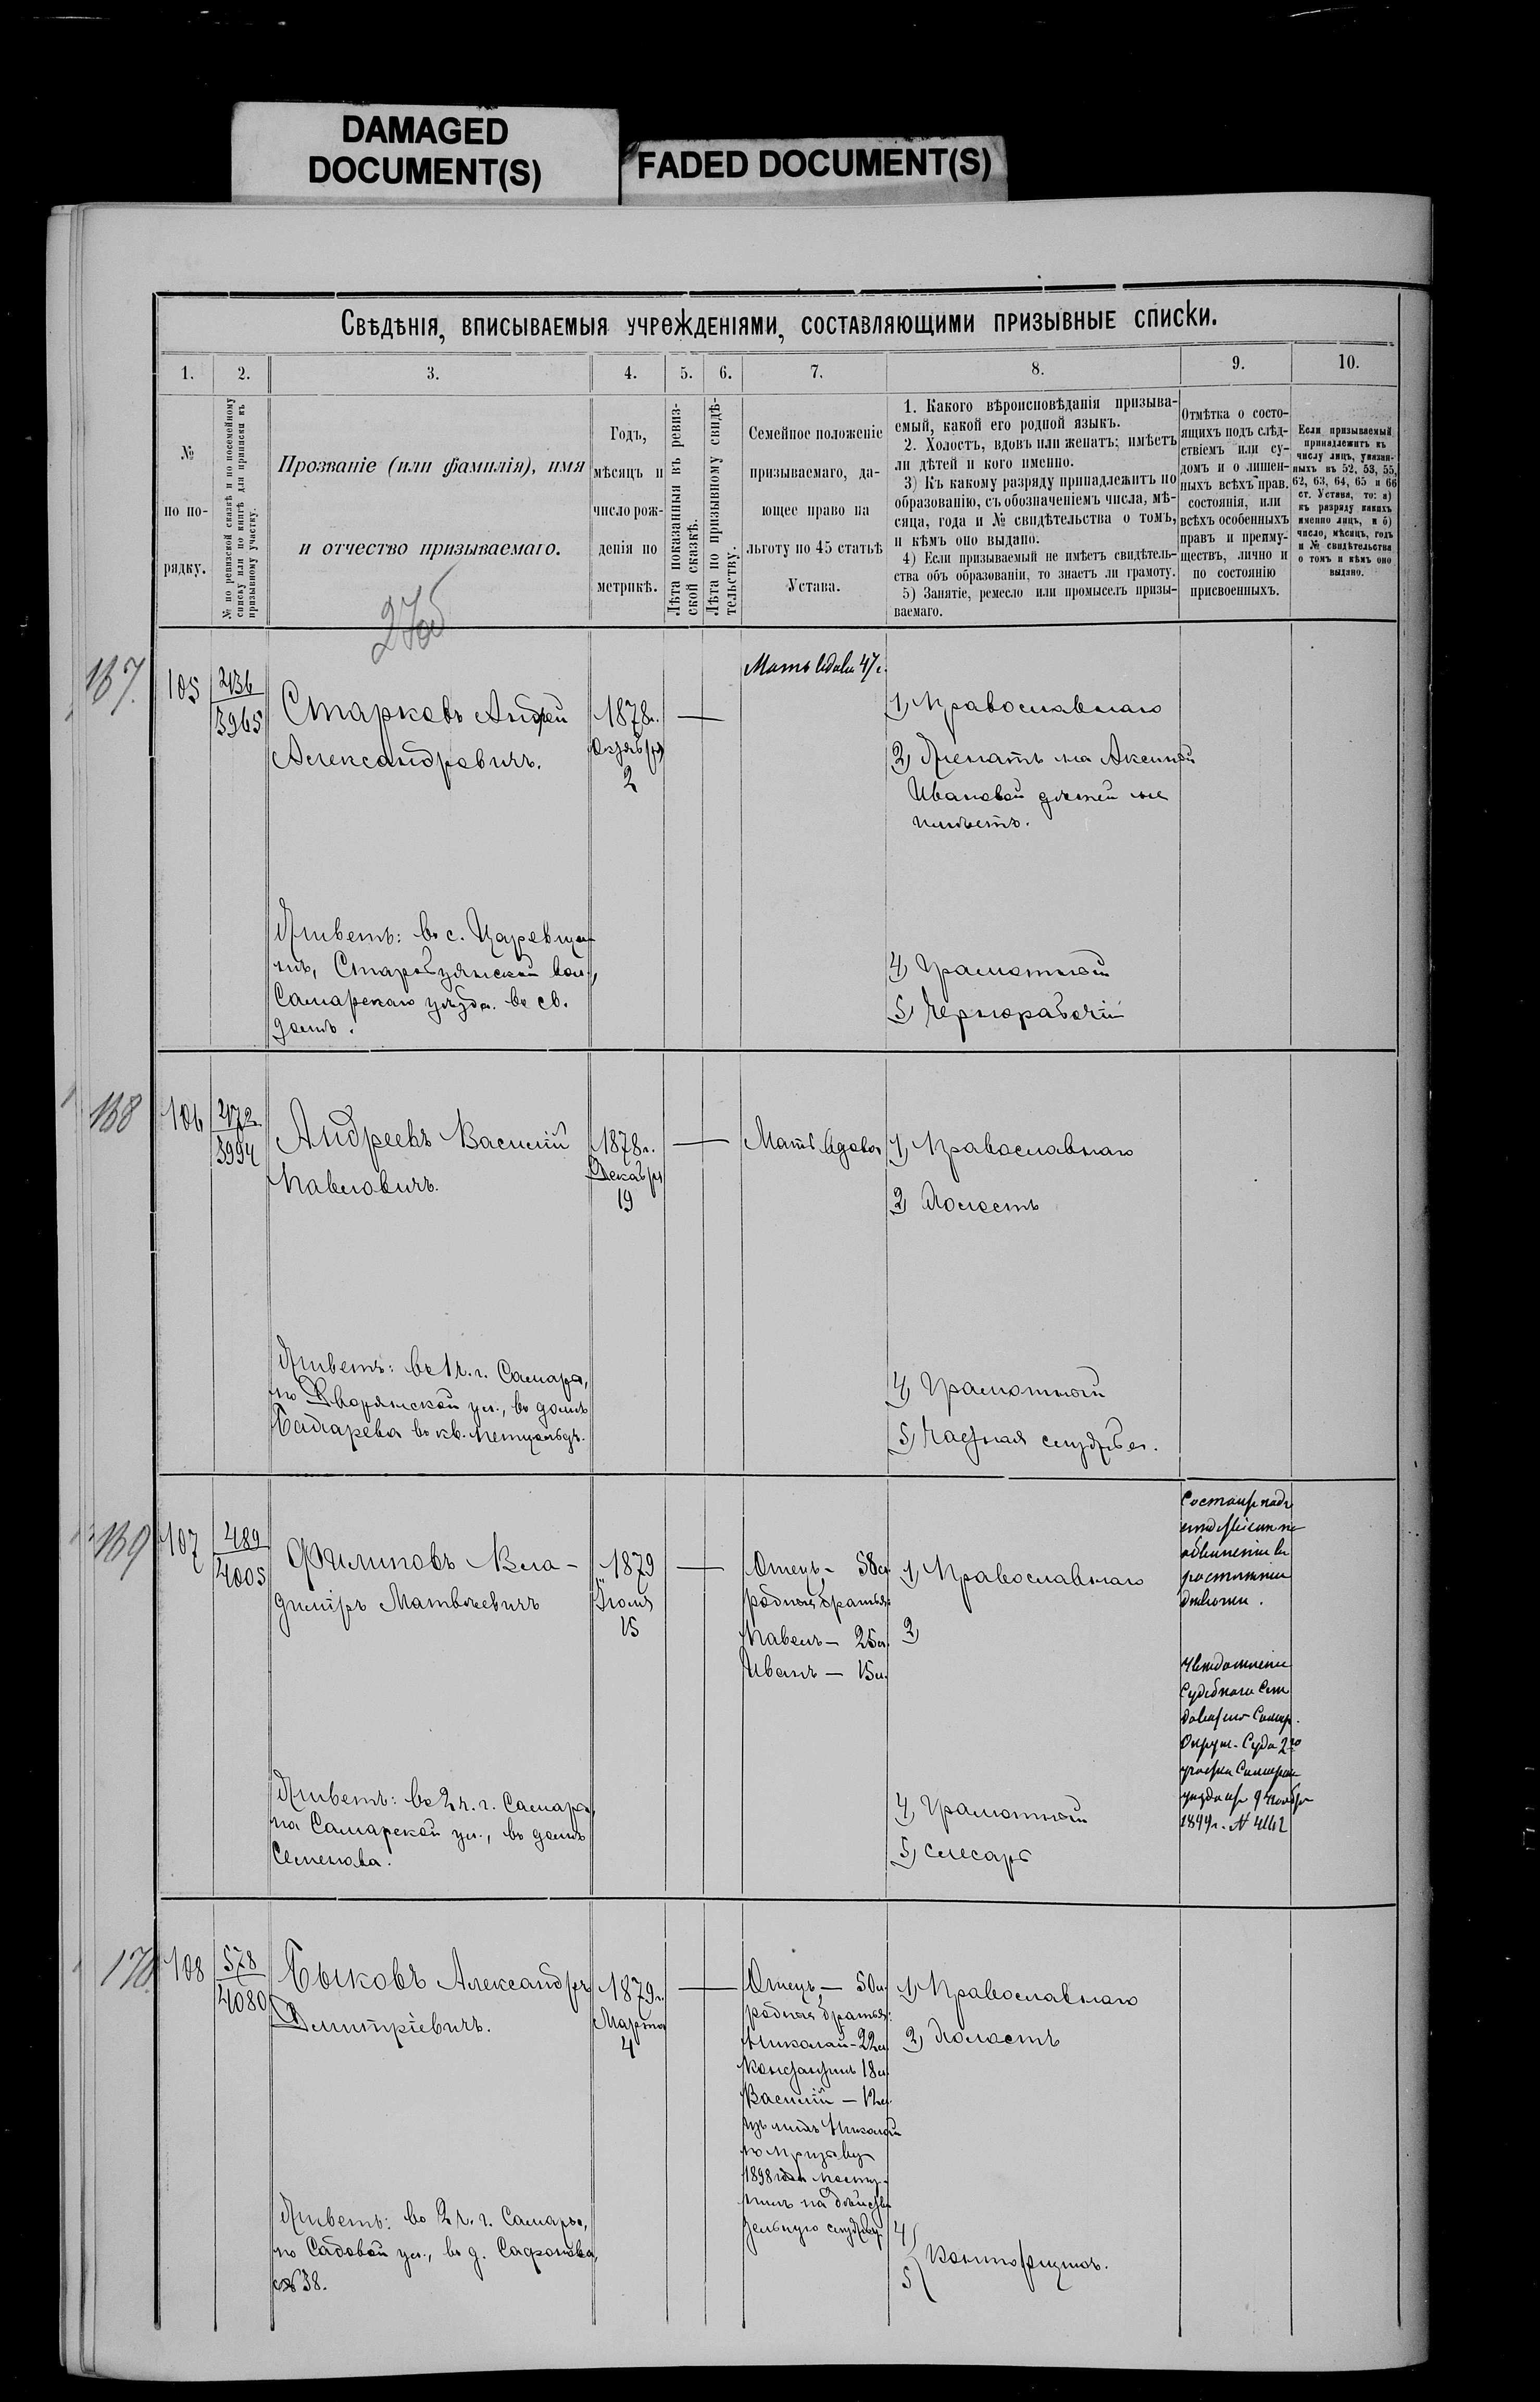 DAMAGED
DOCUMENT(S)
FADED DOCUMENT(S)
Свѣдѣнія, вписываемыя учрежденіями, составляющими призывные списки.
1.
2.
3.
4.
5.
6.
7.
8.
9.
10.
№
по по-
рядку.
№ по ревизской сказкѣ и по посемейному
списку или по книгѣ для приписки къ
призывному участку.
Прозваніе (или фамилія), имя
и отчество призываемаго.
Годъ,
мѣсяцъ и
число рож-
денія по
метрикѣ.
Лѣта показанныя въ ревиз-
ской сказкѣ.
Лѣта по призывному свидѣ-
тельству.
Семейное положеніе
призываемаго, да-
ющее право на
льготу по 45 статьѣ
Устава.
1. Какого вѣроисповѣданія призыва-
емый, какой его родной языкъ.
2. Холостъ, вдовъ или женатъ; имѣетъ
ли дѣтей и кого именно.
3) Къ какому разряду принадлежитъ по
образованію, съ обозначеніемъ числа, мѣ-
сяца, года и № свидѣтельства о томъ,
и кѣмъ оно выдано.
4) Если призываемый не имѣетъ свидѣтель-
ства объ образованіи, то знаетъ ли грамоту.
5) Занятіе, ремесло или промыселъ призы-
ваемаго.
Отмѣтка о состо-
ящихъ подъ слѣд-
ствіемъ или су-
домъ и о лишен-
ныхъ всѣхъ прав.
состоянія, или
всѣхъ особенныхъ
правъ и преиму-
ществъ, лично и
по состоянію
присвоенныхъ.
Если призываемый
принадлежитъ къ
числу лицъ, указан-
ныхъ въ 52, 53, 55,
62, 63, 64, 65 и 66
ст. Устава, то: а)
къ разряду какихъ
именно лицъ, и б)
число, мѣсяцъ, годъ
и № свидѣтельства
о томъ и кѣмъ оно
выдано.
105
3965
Старковъ Андрей
Александровичъ.
1878г.
Октября
2
Мать вдова 47 л.
1) Православнаго
2) Женатъ на Аксиньѣ
Ивановой дѣтей не
имѣетъ.
Живетъ: въ с. Царевщи-
нѣ, Старобуянской вол.,
Самарскаго уѣзда. въ св.
домѣ.
4) Грамотный
5) Чернорабочій
168
106
3994
Андреевъ Василій
Павловичъ.
1878г.
Декабря
19
Мать вдова
1) Православнаго
2) Холостъ
Живетъ: въ 1 ч. г. Самары,
по Дворянской ул., въ домѣ
4) Грамотный
5) Частная служба.
169
107
489
4005
Филиповъ Вла-
диміръ Матвѣевичъ
1879
Іюля
15
Отецъ – 58 л.
родные братья:
Павелъ – 25 л.
Иванъ – 15 л.
1) Православнаго
2)
Живетъ: въ 2 ч. г. Самары,
на Самарской ул., въ домѣ
Семенова.
4) Грамотный
5) Слесарь
170
108
578
4080
Быковъ Александръ
Дмитріевичъ.
1879г.
Марта
4
Отецъ – 50 л.
родные братья:
Николай – 22 л.
Константинъ 18 л.
Василій – 12 л.
изъ нихъ Николай
по призыву
1898 года посту-
пилъ на дѣйстви-
тельную службу
1) Православнаго
2) Холостъ
Живетъ: во 2 ч. г. Самары,
по Садовой ул., въ д. Сафонова,
№ 38.
4)
5)
Конторщикъ.